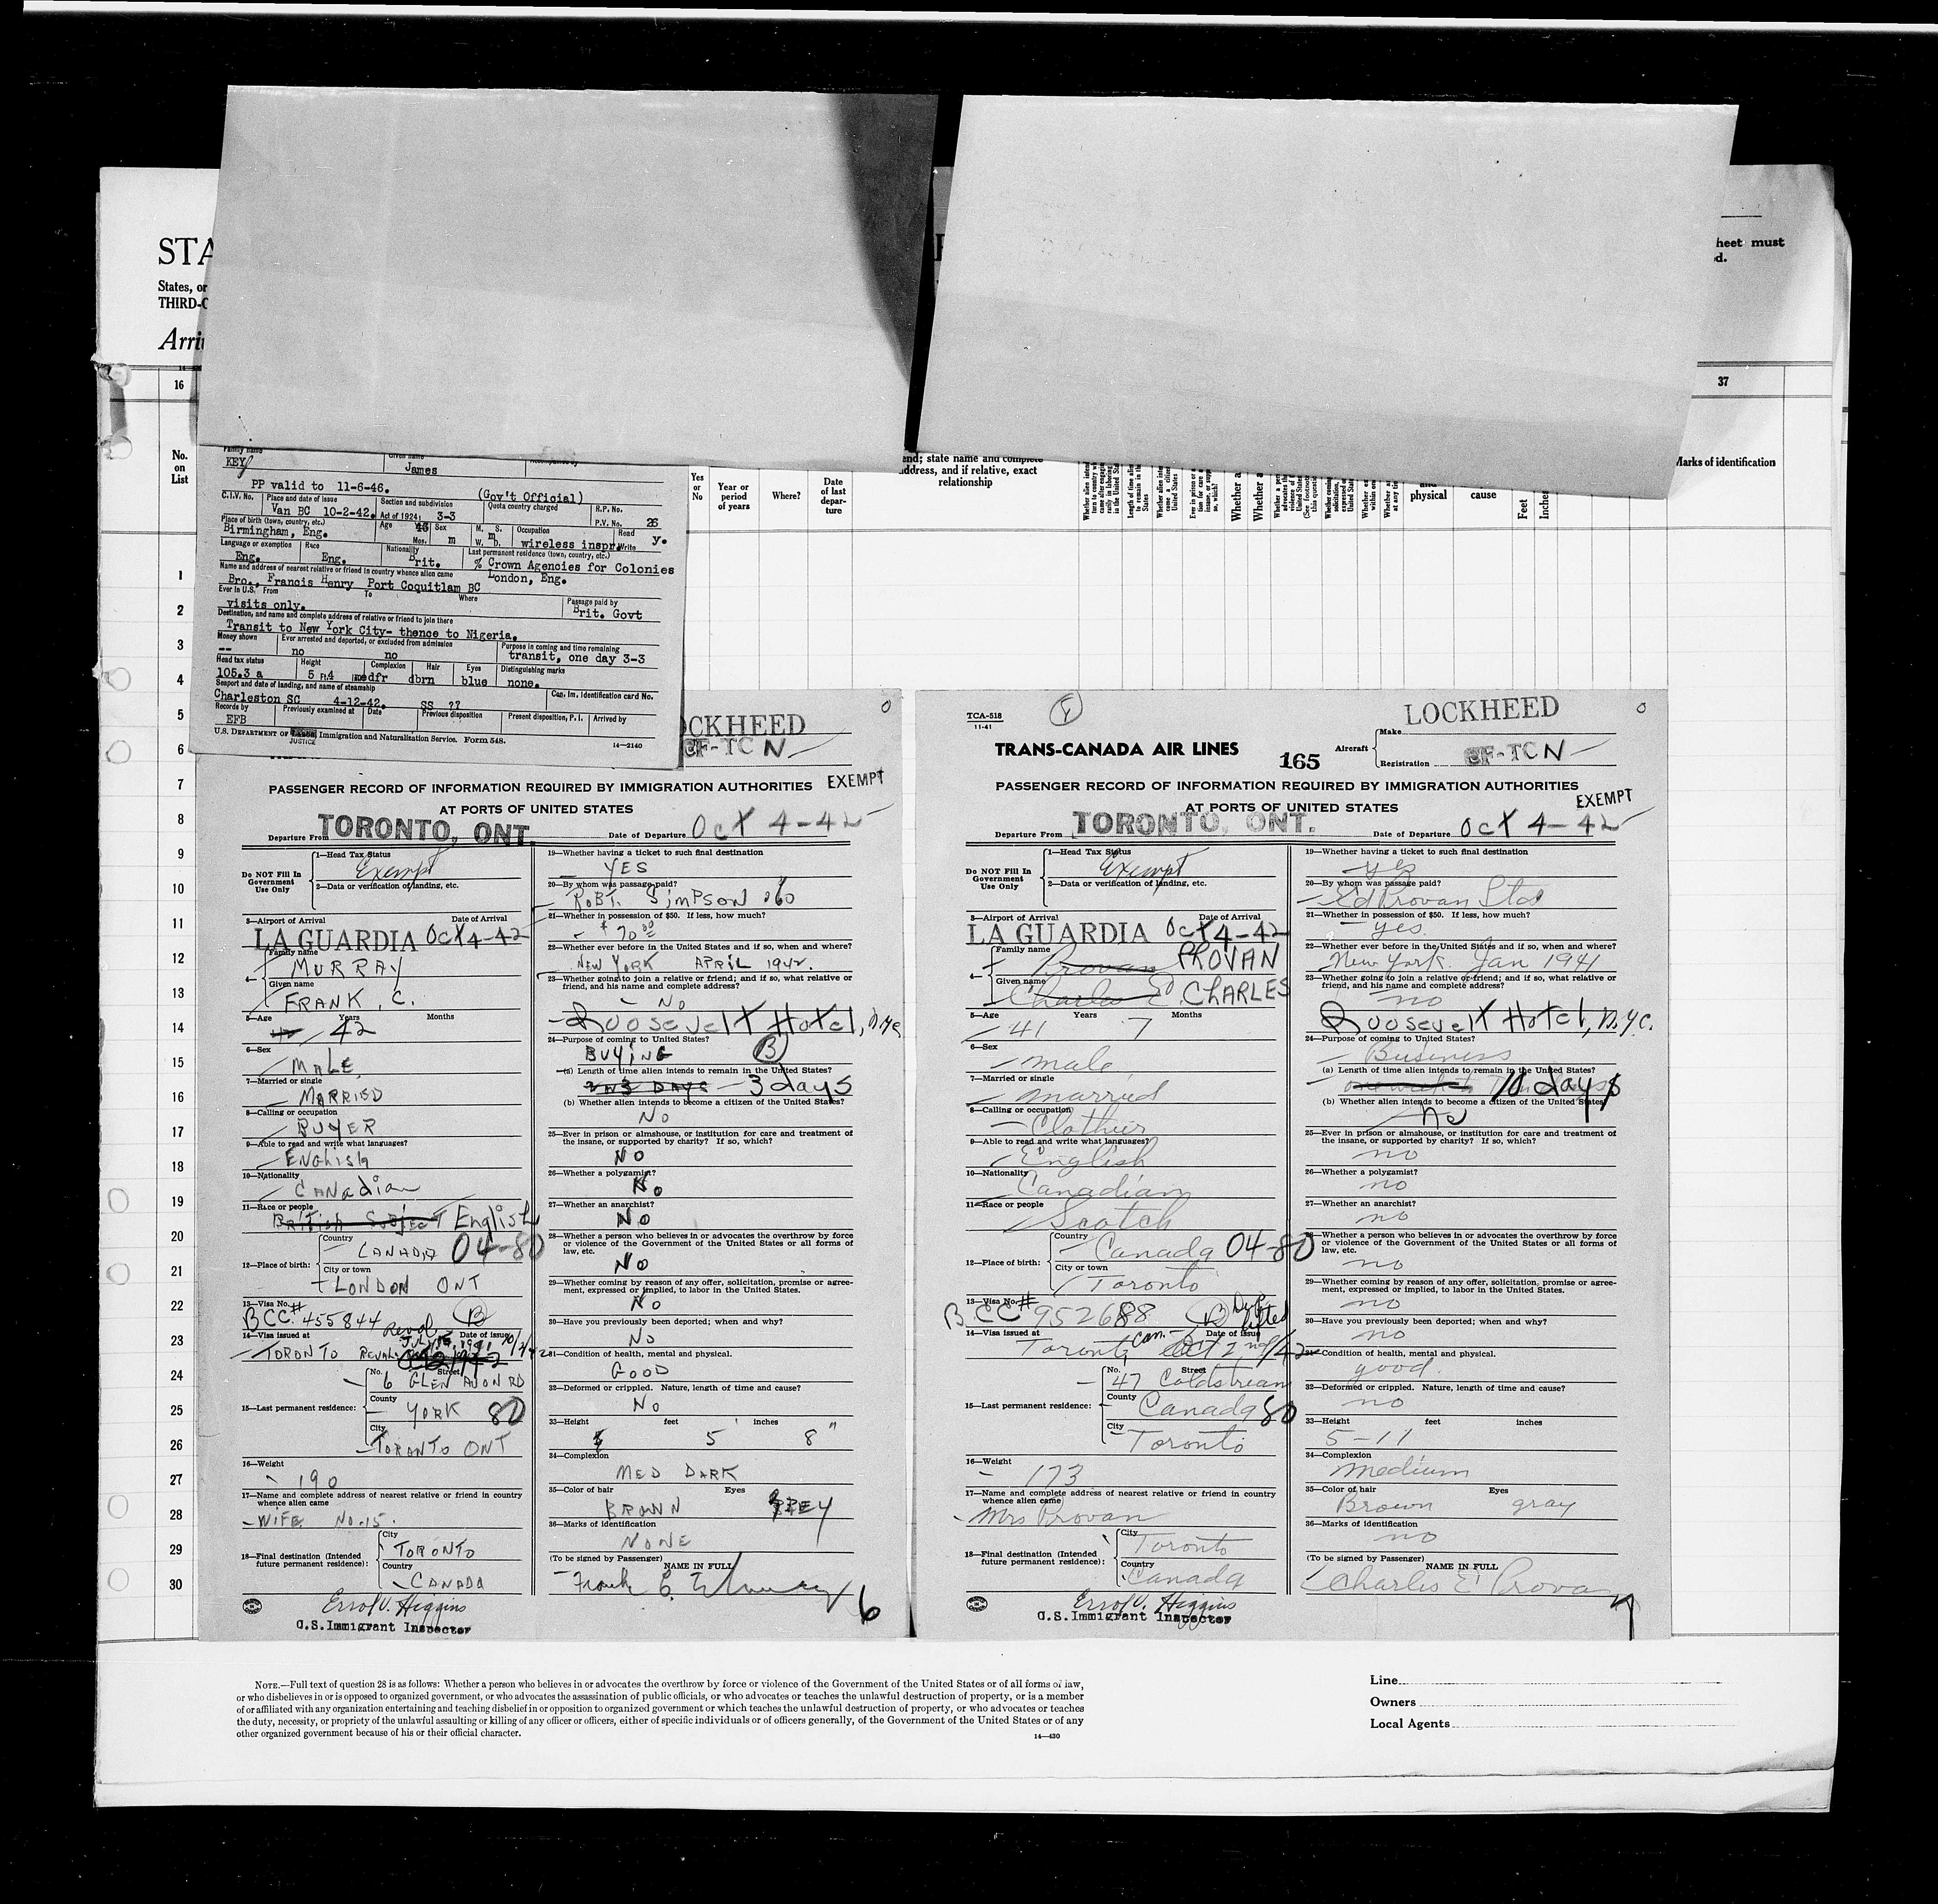 STA
heet must
d.
States, or
THIRD-C
Arri
16
37
No.
on
List
Yes
or
No
Year or
period
of years
Where?
Date
of last
depar-
ture
end; state name and complete
address, and if relative, exact
relationship
physical
cause
Feet
Marks of identification
1
2
3
4
5
6
7
8
9
10
11
12
13
14
15
16
17
18
19
20
21
22
23
24
25
26
27
28
29
30
Family name
Given name
KEY
James
PP valid to 11-6-46.
(Gov't Official)
C.I.V. No.
Place and date of issue
Section and subdivision
Quota country charged
R.P. No.
Van BC 10-2-42.
Act of 1924: 3-3
P.V. No. 26
Place of birth (town, country, etc.)
Age
Sex
M. S.
Occupation
Read
Birmingham, Eng.
Mos.
m
W. D.
m
wireless inspr.
Write
y.
Language or exemption
Race
Nationality
Last permanent residence (town, country, etc.)
Eng.
Eng.
Brit.
% Crown Agencies for Colonies
London, Eng.
Name and address of nearest relative or friend in country whence alien came
Bro., Francis Henry Port Coquitlam BC
Ever in U.S. From
To
Where
Passage paid by
visits only.
Brit. Govt
Destination, and name and complete address of relative or friend to join there
Transit to New York City- thence to Nigeria.
Money shown
Ever arrested and deported, or excluded from admission
Purpose in coming and time remaining
--
no
no
transit, one day 3-3
Head tax status
Height
Complexion
Hair
Eyes
Distinguishing marks
105.3 a
5 Ft.4
medfr
dbrn
blue
none.
Seaport and date of landing, and name of steamship
Can. Im. Identification card No.
Charleston SC 4-12-42. SS ??
Records by
Previously examined at
Date
Previous disposition
Present disposition, P.I.
Arrived by
EFB
U.S. DEPARTMENT OF JUSTICE Immigration and Naturalization Service. Form 548.
14—2140
OCKHEED
0
CF-TC N
EXEMPT
PASSENGER RECORD OF INFORMATION REQUIRED BY IMMIGRATION AUTHORITIES
AT PORTS OF UNITED STATES
Departure From TORONTO, ONT.
Date of Departure Oct 4-42
Do NOT Fill In
Government
Use Only
1—Head Tax Status
Exempt
2—Data or verification of landing, etc.
3—Airport of Arrival
Date of Arrival
LA GUARDIA Oct 4-42
4—
Family name
MURRAY
Given name
FRANK, C.
5—Age
Years
Months
42
6—Sex
MALE
7—Married or single
MARRIED
8—Calling or occupation
BUYER
9—Able to read and write what languages?
ENGlish
10—Nationality
CANadian
11—Race or people
British Subject English
12—Place of birth:
Country
CANADA 04-80
City or town
LONDON ONT
13—Visa No.
BCC # 455844 B
14—Visa issued at
Date of issue
TORONTO
15—Last permanent residence:
No.
Street
6 GLEN AVON RD
County
YORK 80
City
TORONTO ONT
16—Weight
190
17—Name and complete address of nearest relative or friend in country
whence alien came
WIFE No. 15.
18—Final destination (Intended
future permanent residence):
City
TORONTO
Country
CANADA
Errol V. Higgins
U.S. Immigrant Inspector
19—Whether having a ticket to such final destination
YES
20—By whom was passage paid?
ROBT. SIMPSON
21—Whether in possession of $50. If less, how much?
$70.00
22—Whether ever before in the United States and if so, when and where?
NEW YORK APRIL 1942.
23—Whether going to join a relative or friend; and if so, what relative or
friend, and his name and complete address?
NO
Roosevelt Hotel, N.Y.C.
24—Purpose of coming to United States?
BUYING B
(a) Length of time alien intends to remain in the United States?
3 days
(b) Whether alien intends to become a citizen of the United States?
No
25—Ever in prison or almshouse, or institution for care and treatment of
the insane, or supported by charity? If so, which?
NO
26—Whether a polygamist?
No
27—Whether an anarchist?
No
28—Whether a person who believes in or advocates the overthrow by force
or violence of the Government of the United States or all forms of
law, etc.
No
29—Whether coming by reason of any offer, solicitation, promise or agree-
ment, expressed or implied, to labor in the United States.
No
30—Have you previously been deported; when and why?
No
31—Condition of health, mental and physical.
GOOD
32—Deformed or crippled. Nature, length of time and cause?
No
33—Height
feet
inches
5 8"
34—Complexion
MED DARK
35—Color of hair
Eyes
BROWN GREY
36—Marks of identification
NONE
(To be signed by Passenger)
NAME IN FULL
Frank C. Murray
6
TCA-518
11-41
LOCKHEED
0
TRANS-CANADA AIR LINES
165
Aircraft
Make
Registration CF-TCN
PASSENGER RECORD OF INFORMATION REQUIRED BY IMMIGRATION AUTHORITIES
AT PORTS OF UNITED STATES
EXEMPT
Departure From TORONTO, ONT.
Date of Departure Oct 4-42
Do NOT Fill In
Government
Use Only
1—Head Tax Status
Exempt
2—Data or verification of landing, etc.
3—Airport of Arrival
Date of Arrival
LA GUARDIA Oct 4-42
4—
Family name
Provan PROVAN
Given name
Charles E. CHARLES
5—Age
Years
Months
41 7
6—Sex
male
7—Married or single
married
8—Calling or occupation
Clothier
9—Able to read and write what languages?
English
10—Nationality
Canadian
11—Race or people
Scotch
12—Place of birth:
Country
Canada 04-80
City or town
Toronto
13—Visa No.
BCC # 952688 B
lifted
14—Visa issued at
Date of issue
Toronto Can. Oct 2nd/42
15—Last permanent residence:
No.
Street
47 Coldstream
County
Canada 80
City
Toronto
16—Weight
173
17—Name and complete address of nearest relative or friend in country
whence alien came
Mrs Provan
18—Final destination (Intended
future permanent residence):
City
Toronto
Country
Canada
Errol V. Higgins
U.S. Immigrant Inspector
19—Whether having a ticket to such final destination
yes
20—By whom was passage paid?
Ed Provan Ltd
21—Whether in possession of $50. If less, how much?
yes.
22—Whether ever before in the United States and if so, when and where?
New York. Jan 1941
23—Whether going to join a relative or friend; and if so, what relative or
friend, and his name and complete address?
no
Roosevelt Hotel, N.Y.C.
24—Purpose of coming to United States?
Business
(a) Length of time alien intends to remain in the United States?
10 days
(b) Whether alien intends to become a citizen of the United States?
No
25—Ever in prison or almshouse, or institution for care and treatment of
the insane, or supported by charity? If so, which?
no
26—Whether a polygamist?
no
27—Whether an anarchist?
no
28—Whether a person who believes in or advocates the overthrow by force
or violence of the Government of the United States or all forms of
law, etc.
no
29—Whether coming by reason of any offer, solicitation, promise or agree-
ment, expressed or implied, to labor in the United States.
no
30—Have you previously been deported; when and why?
no
31—Condition of health, mental and physical.
good
32—Deformed or crippled. Nature, length of time and cause?
no
33—Height
feet
inches
5-11
34—Complexion
medium
35—Color of hair
Eyes
Brown gray
36—Marks of identification
no
(To be signed by Passenger)
NAME IN FULL
Charles E Provan
7
NOTE.—Full text of question 28 is as follows: Whether a person who believes in or advocates the overthrow by force or violence of the Government of the United States or of all forms of law,
or who disbelieves in or is opposed to organized government, or who advocates the assassination of public officials, or who advocates or teaches the unlawful destruction of property, or is a member
of or affiliated with any organization entertaining and teaching disbelief in or opposition to organized government or which teaches the unlawful destruction of property, or who advocates or teaches
the duty, necessity, or propriety of the unlawful assaulting or killing of any officer or officers, either of specific individuals or of officers generally, of the Government of the United States or of any
other organized government because of his or their official character.
14—430
Line
Owners
Local Agents